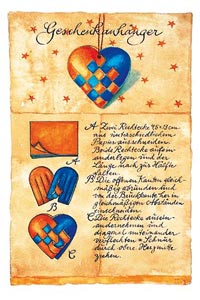 Geschenkanhänger
A Zwei Rechtecke 4,5×13cm
aus unterschiedlichem
Papier ausschneiden.
Beide Rechtecke aufein-
anderlegen und der
Länge nach zur Hälfte
falten.
B Die offenen Kanten gleich
mäßig abrunden und
von der Bruchkante her in
gleichmäßigen Abständen
einschneiden.
C Die Rechtecke ausein-
andernehmen und
diagonal miteinander
verflechten * Schnur
durch obere Herzmitte
ziehen.
A
B
C